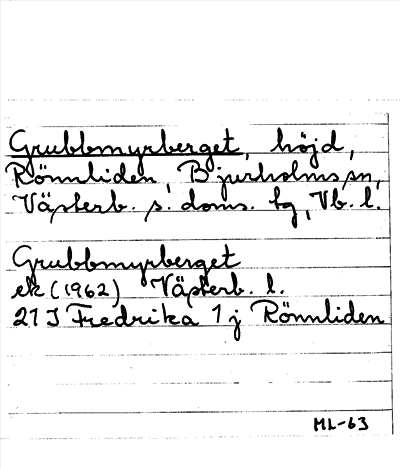 Grubbmyrberget, höjd,
Rönnliden, Bjurholms sn,
Västerb. s. doms. tg, Vb. l.
Grubbmyrberget
ek (1962) Västerb. l.
21 J Fredrika 1 j Rönnliden
ML-63